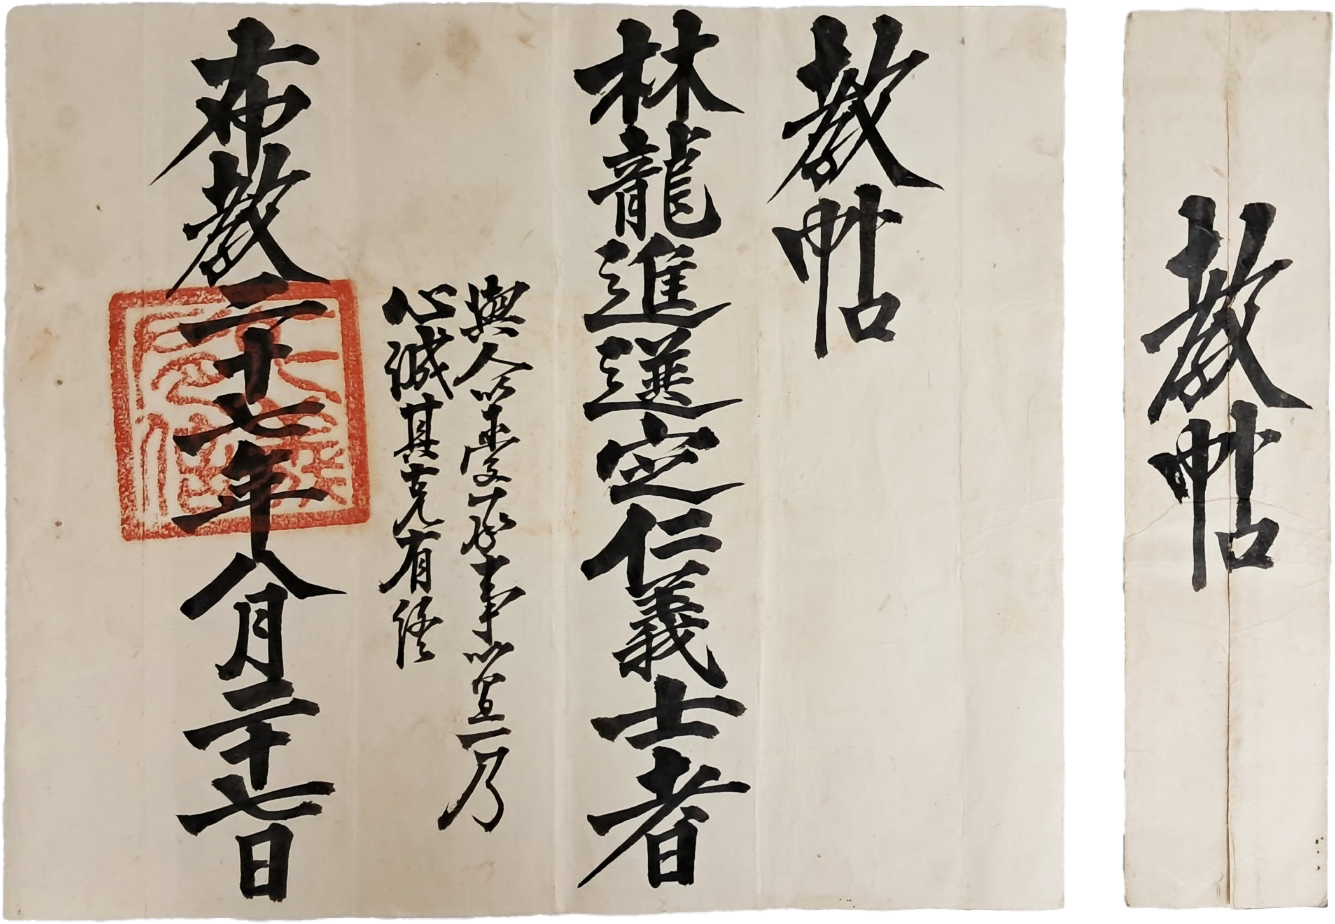 教帖
教帖
林龍進選定仁義士者
與人以受事以一乃
心誠其克有
布教二十七年八月二十七日